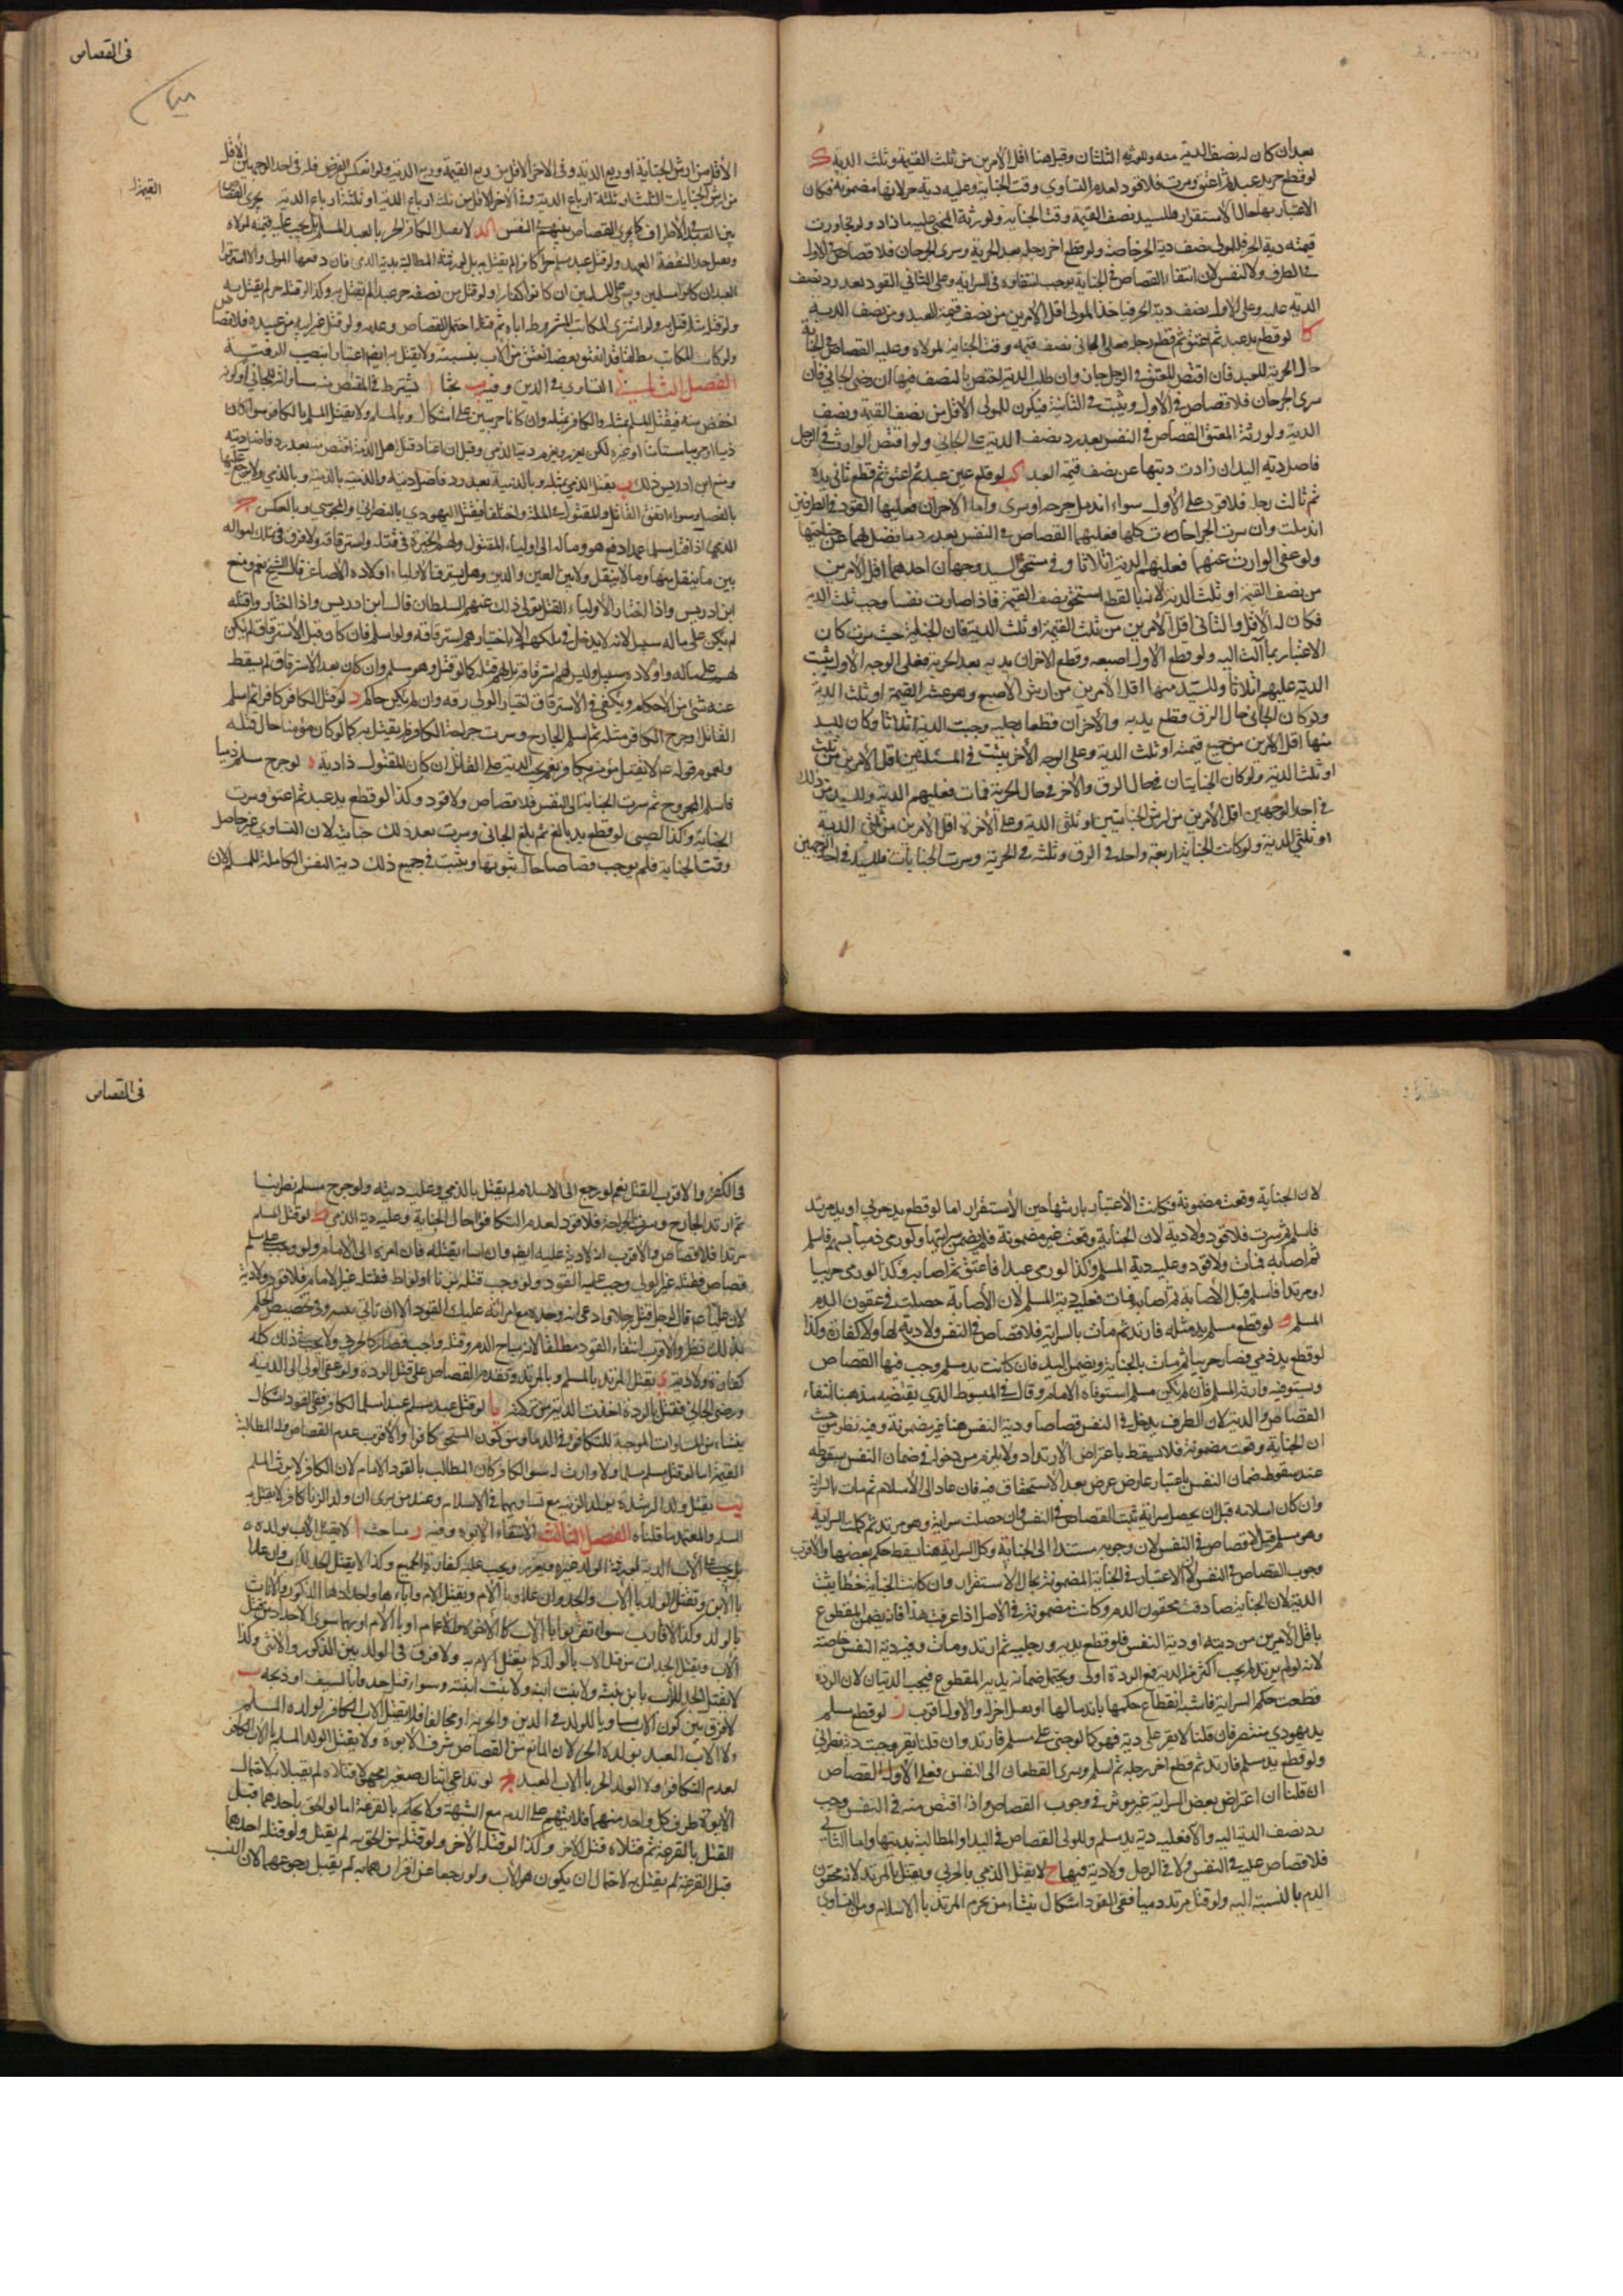 بعد ان كان له نصف الدية منه وللورثة الثلثان وقيل هنا اقل الأمرين من ثلث القيمة وثلث الدية ك
لو قطع حر يد عبد ثم اعتق وسرت فلا قود لعدم التساوي وقت الجناية وعليه دية حر لانها مضمونة فكان
الاعتبار بها حال الاستقرار وللسيد نصف القيمة وقت الجناية ولورثة المجني عليه ما زاد ولو تجاوزت
قيمته دية الحر فللمولى نصف دية الحر خاصة ولو قطع اخر رجله بعد الحرية وسرى الجرحان فلا قصاص على الاول
في الطرف ولا النفس لان انتفاء القصاص في الجناية يوجب انتفاؤه في السراية وعلى الثاني القود بعد رد نصف
الدية عليه وعلى الاول نصف دية الحر فياخذ المولى اقل الامرين من نصف قيمة العبد ومن نصف الدية
كا لو قطع يد عبد ثم اعتق ثم قطع رجله فعلى الجاني نصف قيمته وقت الجناية لمولاه وعليه القصاص في الجناية
حال الحرية للعبد فان اقتص المعتق في الرجل جاز وان طلب الدية اختص بالنصف فيها ان رضي الجاني فان
سرى الجرحان فلا قصاص في الاول ويثبت في الثانية فيكون للمولى الاقل من نصف القيمة ونصف
الدية ولورثة المعتق القصاص في النفس بعد رد نصف الدية على الجاني ولو اقتص الوارث في الرجل
فاضل دية اليد ان زادت ديتها عن نصف قيمة العبد كب لو قلع عين عبد ثم اعتق ثم قطع ثاني يده
ثم ثالث رجله فلا قود على الاول سواء اندمل جرحه او سرى واما الاخران فعليهما القود في الطرفين
اندملت وان سرت الجراحات كلها فعليهما القصاص في النفس بعد رد ما يفضل لهما عن جنايتهما
ولو عفى الوارث عنهما فعليهم الدية اثلاثا وفي مستحق السيد وجهان احدهما اقل الامرين
من نصف القيمة او ثلث الدية لانه بالقطع استحق نصف القيمة فاذا صارت نفسا وجب ثلث الدية
فكان له الاقل والثاني اقل الامرين من ثلث القيمة او ثلث الدية فان الجناية حيث سرت كان
الاعتبار بما آلت اليه ولو قطع الاول اصبعه وقطع الاخران يديه بعد الحرية فعلى الوجه الاول يثبت
الدية عليهم اثلاثا وللسيد منها اقل الامرين من ارش الاصبع وهو عشر القيمة او ثلث الدية
ولو كان الجاني حال الرق قطع يديه والاخران قطعا رجليه وجبت الدية اثلاثا وكان للسيد
منها اقل الامرين من جميع قيمته او ثلث الدية وعلى الوجه الاخر يثبت في المسئلتين اقل الامرين من ثلث
او ثلث الدية ولو كان الجنايتان في حال الرق والاخر في حال الحرية فمات فعليهم الدية وللسيد من ذلك
في احد الوجهين اقل الامرين من ارش الجنايتين او ثلثي الدية وعلى الآخر اقل الامرين من ثلثي الدية
او ثلثي الدية ولو كانت الجنايات اربعة واحدة في الرق وثلثه في الحرية وسرت الجنايات فللسيد في احد الوجهين
في القصاص
الاقل من ارش الجناية او ربع الدية وفي الآخر الاقل من ربع القيمة وربع الدية ولو انعكس الفرض فله في احد الوجهين الاقل
من ارش الجنايات الثلث او ثلثة ارباع الدية وفي الآخر الاقل من ثلثة ارباع الدية او ثلثة ارباع الدية يجري القصاص
القيمة
بين العبيد في الاطراف كما يجري القصاص بينهم في النفس كد لا يقتل الكافر الحر بالعبد المسلم بل يجب عليه قيمته لمولاه
العبد ان كانوا مسلمين ويرعى للمسلمين ان كانوا كفارا ولو قتل من نصفه حر عبدا لم يقتل به وكذا لو قتله حر لم يقتل به
ولو كان المكاتب مطلقا قد انعتق بعضه انعتق من الاب بنسبته ولا يقتل به ايضا اعتبارا بنصيب الرقية
الفصل الثاني في التساوي في الدين وفيه يب بحثا ا يشترط في المقتص منه مساواته للجاني او كونه
اخفض منه فيقتل المسلم بمثله والكافر بمثله وان كانا حربيين على اشكال وبالمسلم ولا يقتل المسلم بالكافر سواء كان
ذميا او حربيا مستأمنا او غيره لكن يعزر ويغرم دية الذمي وقيل ان اعتاد قتل اهل الذمة اقتص منه بعد رد فاضل ديته
ومنع ابن ادريس ذلك ب يقتل الذمي بمثله وبالذمية بعد رد فاضل ديته والذمية بالذمية وبالذمي ولا يرجع عليها
بالفضل وسواء اتفق القاتل والمقتول في الملة واختلفا فيقتل اليهودي بالنصراني والمجوسي وبالعكس ج
الذمي اذا قتل مسلما عمدا دفع هو وماله الى اولياء المقتول ولهم الخيرة في قتله واسترقاقه ولا فرق في تملك امواله
بين ما ينقل منها وما لا ينقل ولا بين العين والدين وهل يسترق الاولياء اولاده الاصاغر قال الشيخ نعم ومنع
ابن ادريس واذا اختار الاولياء القتل يولى ذلك عنهم السلطان قال ابن ادريس واذا اختاروا قتله
لم يكن على ماله سبيل لانه لا يدخل في ملكهم الا باختيارهم استرقاقه ولو اسلم فان كان قبل الاسترقاق لم يكن
لهم على ماله واولاده سبيل وليس لهم استرقاقه بل لهم قتله كما لو قتل وهو مسلم وان كان بعد الاسترقاق لم يسقط
عنه شئ من الاحكام ويكفي في الاسترقاق اختيار الولي رقه وان لم يكن حاكم د لو قتل الكافر كافرا ثم اسلم
القاتل او جرح الكافر مثله ثم اسلم الجارح وسرت جراحة الكافر لم يقتل به كما لو كان مؤمنا حال قتله
ولعموم قوله عم لا يقتل مؤمن بكافر نعم يجب الدية على القاتل ان كان للمقتول ذا دية ه لو جرح مسلم ذميا
فاسلم المجروح ثم سرت الجناية الى النفس فلا قصاص ولا قود وكذا لو قطع يد عبد ثم اعتق وسرت
الجناية وكذا الصبي لو قطع يد بالغ ثم بلغ الجاني وسرت بعد ذلك جنايته لان التساوي غير حاصل
وقت الجناية فلم يوجب قصاصا حال ثبوتها ويثبت في جميع ذلك دية النفس الكاملة للمسلم لان
لان الجناية وقعت مضمونة فكانت الاعتبار بارشها حين الاستقرار اما لو قطع يد حربي او يد مرتد
فاسلم ثم سرت فلا قود ولا دية لان الجناية وقعت غير مضمونة فلم يضمن سرايتها ولو رمى ذميا بسهم فاسلم
ثم اصابه فمات فلا قود وعليه دية المسلم وكذا لو رمى عبدا فاعتق ثم اصابه وكذا لو رمى حربيا
او مرتدا فاسلم قبل الاصابة ثم اصابه فمات فعليه دية المسلم لان الاصابة حصلت في محقون الدم
المسلم و لو قطع مسلم يد مثله فارتد ثم مات بالسراية فلا قصاص في النفس ولا دية لها ولا كفارة وكذا
لو قطع يد ذمي فصار حربيا ثم مات بالجناية ويضمن اليد فان كانت يد مسلم وجب فيها القصاص
ويستوفيه وارثه المسلم فان لم يكن مسلم استوفاه الامام وقال في المبسوط الذي يقتضيه مذهبنا انتفاء
القصاص والدية لان الطرف يدخل في النفس قصاصا ودية النفس هنا غير مضمونة وفيه نظر من حيث
ان الجناية وقعت مضمونة فلا يسقط باعتراض الارتداد ولا يلزم من دخوله في ضمان النفس سقوطه
عند سقوط ضمان النفس باعتبار عارض عرض بعد الاستحقاق فيه فان عاد الى الاسلام ثم مات بالسراية
وان كان اسلامه قبل ان يحصل سراية ثبت القصاص في النفس وان حصلت سراية وهو مرتد ثم كملت السراية
وهو مسلم قيل لا قصاص في النفس لان وجوبه مستندا الى الجناية وكل السراية هنا يسقط حكم بعضها والاقرب
وجوب القصاص في النفس لان الاعتبار في الجناية المضمونة بحال الاستقرار وان كانت الجناية خطأ يثبت
الدية لان الجناية صادفت محقون الدم وكانت مضمونة في الاصل اذا عرفت هذا فانه يضمن المقطوع
باقل الامرين من ديته او دية النفس فلو قطع يديه ورجليه ثم ارتد ومات وفيه دية النفس خاصة
لانه لو لم يرتد لم يجب اكثر من الدية فمع الردة اولى ويحتمل ضمانه بدية المقطوع فيجب الديتان لان الردة
قطعت حكم السراية فاشبه انقطاع حكمها باندمالها او بفعل اخر والاول اقرب ز لو قطع مسلم
يد يهودي متنصر فان قلنا لا يقر على دية فهو كما لو جنى على مسلم فارتد وان قلنا يقر وجبت دية نصراني
ولو قطع يد مسلم فارتد ثم قطع اخر رجله ثم اسلم وسرى القطعان الى النفس فعلى الاول القصاص
ان قلنا ان اعتراض بعض السراية غير مؤثر في وجوب القصاص واذا اقتص منه في النفس وجب
رد نصف الدية اليه والا فعليه دية يد مسلم وللولي القصاص في اليد او المطالبة بديتها واما الثاني
فلا قصاص عليه في النفس ولا في الرجل ولا دية فيهما ح لا يقتل الذمي بالحربي ويقتل بالمرتد لانه محقون
الدم بالنسبة اليه ولو قتل مرتد ذميا ففي القود اشكال ينشاء من تحرم المرتد بالاسلام ومن التساوي
في القصاص
في الكفر والاقرب القتل نعم لو رجع الى الاسلام لم يقتل بالذمي وعليه ديته ولو جرح مسلم نصرانيا
ثم ارتد الجارح وسرت الجراحة فلا قود لعدم التكافؤ حال الجناية وعليه دية الذمي ط لو قتل المسلم
مرتدا فلا قصاص والاقرب انه لا دية عليه ايضا وان اساء بقتله فان امره الى الامام ولو وجب على مسلم
قصاص فقتله غير الولي وجب عليه القود ولو وجب قتله بزنا او لواط فقتله غير الامام فلا قود ولا دية
لان عليا عم قال لرجل قتل رجلا وادعى انه وجده مع امراته عليك القود الا ان تاتي ببينة وفي تخصيص الحكم
بذلك نظر والاقرب انتفاء القود مطلقا لانه مباح الدم وقتله واجب فصار كالحربي ولا يجب في ذلك كله
كفارة ولا دية ي يقتل المرتد بالمسلم وبالمرتد ويقدم القصاص على قتل الردة ولو عفى الولي الى الدية
ورضى الجاني فقتل بالردة اخذت الدية من تركته يا لو قتل عبد مسلم عبدا مسلما لكافر ففي القود اشكال
ينشاء من المساوات الموجبة للتكافؤ في الدماء ومن كون المستحق كافرا والاقرب عدم القصاص وله المطالبة
القيمة اما لو قتل مسلم مسلما ولا وارث له سوى الكافر كان المطالب بالقود الامام لان الكافر لا يرث المسلم
يب يقتل ولد الرشدة بولد الزنية مع تساويهما في الاسلام وعند من يرى ان ولد الزنا كافر لا يقتل به
المسلم والمعتمد ما قلناه الفصل الثالث الانتفاء الابوة وفيه ز مباحث ا لا يقتل الاب بولده
بل يجب على الاب الدية لورثة الولد غيره ويعزر ويجب عليه كفارة الجمع وكذا لا يقتل الجد للاب وان علا
بالابن ويقتل الولد بالاب والجد وان علا وبالام ويقتل الام واباءها واجدادها الذكور والاناث
بالولد وكذا الاقارب سواء تقربوا بالاب كالاخوة والاعمام او بالام او بهما سوى الاجداد من قبل
الاب ويقتل الجدات من قبل الاب بالولد كما يقتل الام به ولا فرق في الولد بين الذكور والانثى وكذا
لا يقتل الجد للاب بابن بنته ولا بنت ابنه ولا بنت ابنته وسواء قتله حدفا بالسيف او ذبحه ب
لا فرق بين كون الاب مساويا للولد في الدين والحرية او مخالفا فلا يقتل الاب الكافر لولده المسلم
ولا الاب العبد بولده الحر لان المانع من القصاص شرف الابوة ولا يقتل الولد المسلم بالاب الكافر
لعدم التكافؤ ولا الولد الحر بالاب العبد ج لو تداعى اثنان صغيرا مجهولا فقتلاه لم يقبلا به لاحتمال
الابوة في طرف كل واحد منهما فلا يتهجم على الدم مع الشبهة ولا يحكم بالقرعة اما لو الحق باحدهما قبل
القتل بالقرعة ثم قتلاه قتل الاخر وكذا لو قتله الاخر ولو قتله من الحق به لم يقتل ولو قتله احدهما
قبل القرعة لم يقتل به لاحتمال ان يكون هو الاب ولو رجعا عن اقرارهما به لم يقبل رجوعهما لان النسب